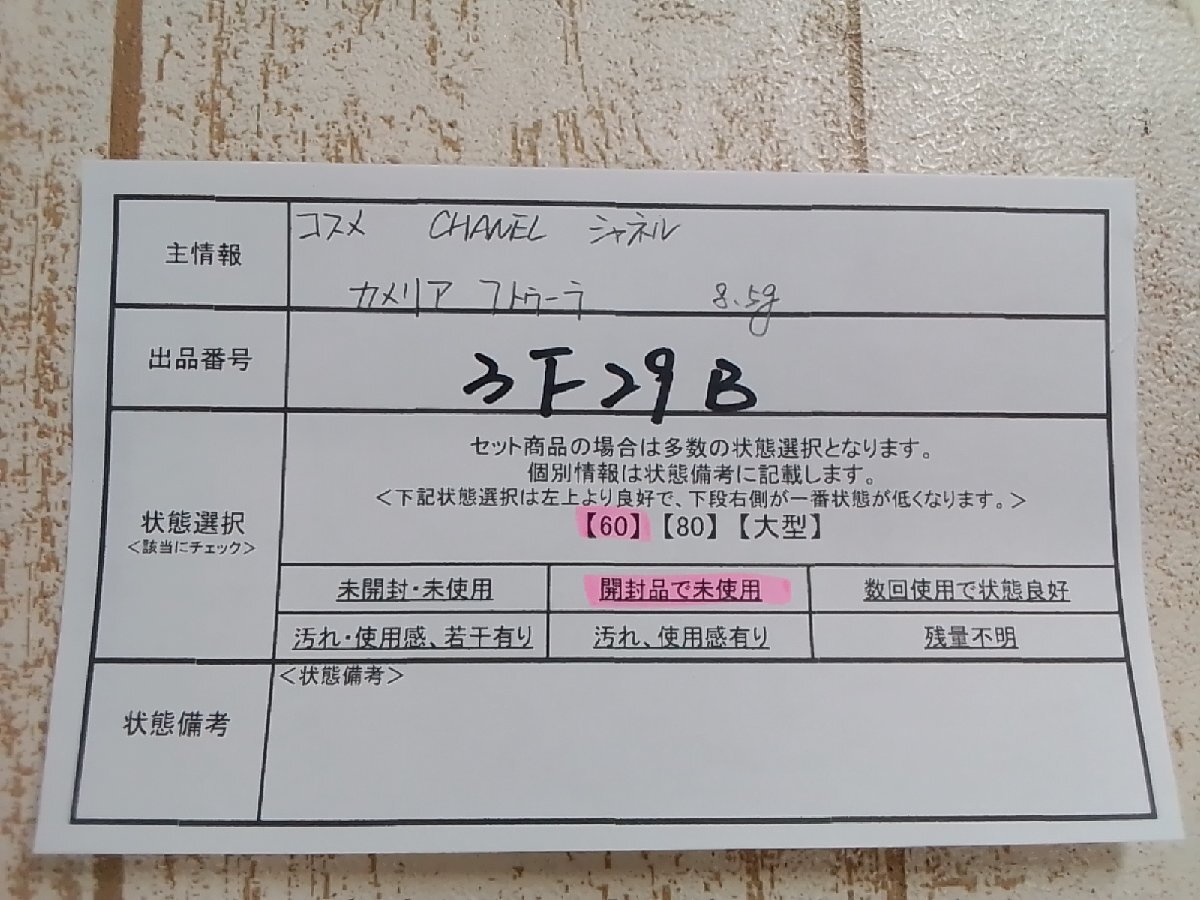 主情報
コスメ CHANEL シャネル
カメリア フトゥーラ 8.5g
出品番号
3F29B
状態選択
<該当にチェック>
セット商品の場合は多数の状態選択となります。
個別情報は状態備考に記載します。
<下記状態選択は左上より良好で、下段右側が一番状態が低くなります。>
【60】【80】【大型】
未開封・未使用 開封品で未使用 数回使用で状態良好
汚れ・使用感、若干有り 汚れ、使用感有り 残量不明
状態備考
<状態備考>